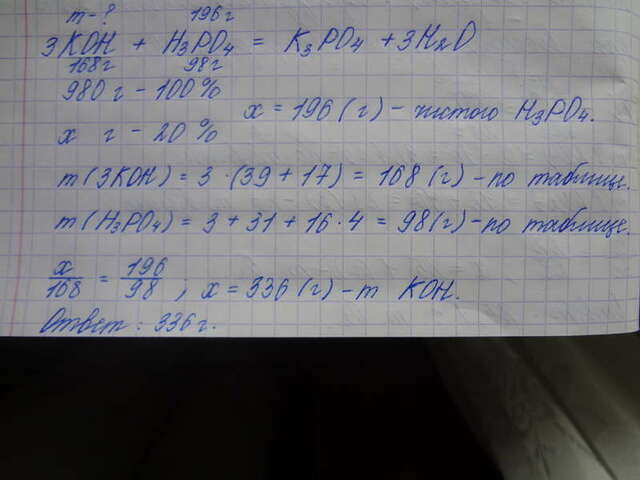 m - ? 196 г
3KOH + H₃PO₄ = K₃PO₄ + 3H₂O
168г 98г
980 г - 100%
x = 196 (г) - чистого H₃PO₄.
x г - 20%
m (3KOH) = 3 · (39 + 17) = 168 (г) - по таблице.
m (H₃PO₄) = 3 + 31 + 16 · 4 = 98 (г) - по таблице.
x/168 = 196/98 ; x = 336 (г) - m KOH.
Ответ : 336 г.